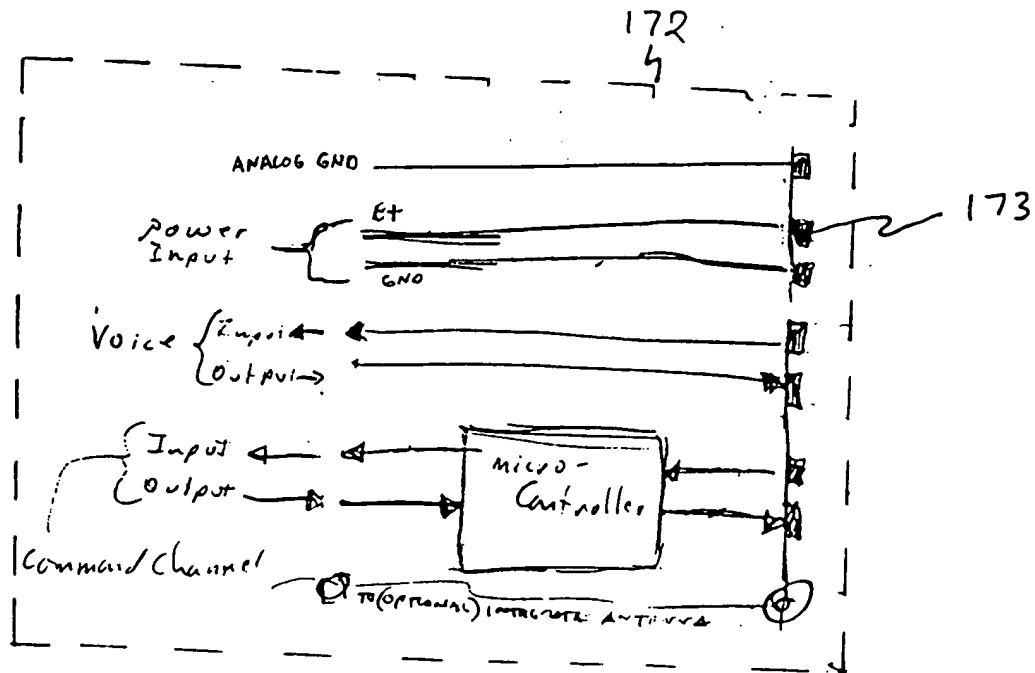 172
ANALOG GND
173
Power
Input
E+
GND
Voice
Input
Output
Input
Output
micro-
Controller
Command Channel
TO (OPTIONAL) INTEGRATE ANTENNA